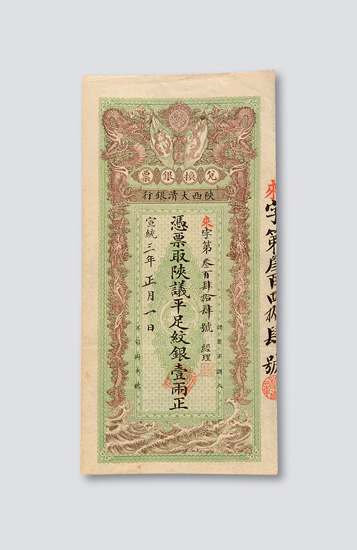 兌換銀票
陝西大清銀行
來字第叁百肆拾肆號
經理
憑票取陝議平足紋銀壹兩正
宣統三年正月一日
認票不認人
來字第叁百四拾肆號